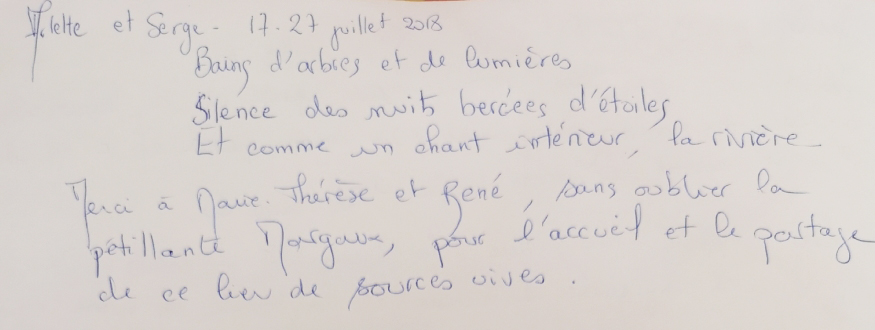 et Serge - 17-27 juillet 2018
Bains d'arbres et de lumières
Silence des nuits bercées d'étoiles
Et comme un chant intérieur, la rivière
Merci à Marie-Thérèse et René, sans oublier la
pétillante Margaux, pour l'accueil et le partage
de ce lieu de sources vives.